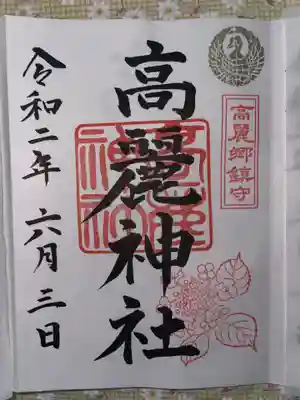 高麗郷鎮守
高麗神社
令和二年 六月 三日